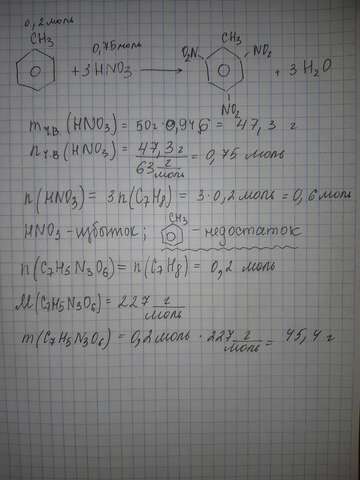 0,2 моль
CH₃
0,75 моль
CH₃
O₂N
NO₂
+ 3HNO₃ ⟶ + 3H₂O
NO₂
mч.в (HNO₃) = 50г · 0,946 = 47,3 г
nч.в (HNO₃) = 47,3 г / 63 г/моль = 0,75 моль
n(HNO₃) = 3n(C₇H₈) = 3 · 0,2 моль = 0,6 моль
CH₃
HNO₃ - избыток; - недостаток
n(C₇H₅N₃O₆) = n(C₇H₈) = 0,2 моль
M(C₇H₅N₃O₆) = 227 г/моль
m(C₇H₅N₃O₆) = 0,2 моль · 227 г/моль = 45,4 г